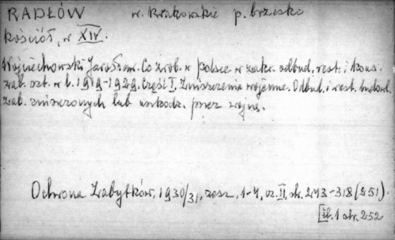 RADŁÓW w. krakowskie p. brzeski
kościół, w XIV.
Wojciechowski Jarosław. Co zrob. w Polsce w zakr. odbud. rest. i kons.
zab. szt. w l. 1919-1929. Część I. Zniszczenia wojenne. Odbud. i rest. budowl.
zab. zniszczonych lub uszkodz. przez wojnę.
Ochrona Zabytków, 1930/31, zesz. 1-4, cz. II, str. 243-318 (251).
il. 1 str. 252